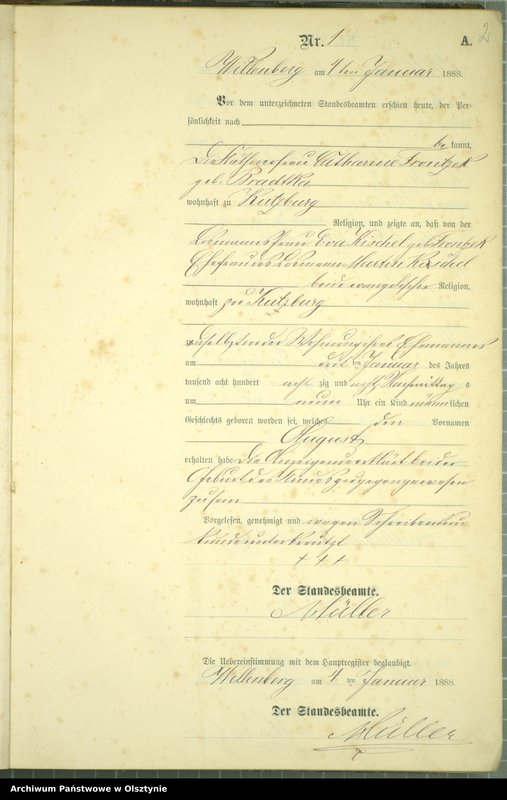 Nr. 1
A. 2
Willenberg am 4 ten Januar 1888.
Vor dem unterzeichneten Standesbeamten erschien heute, der Per-
sönlichkeit nach
be kannt,
Die Käthnerfrau Catharine Frontzek
geb. Bradtka
wohnhaft zu Kutzburg
Religion, und zeigte an, daß von der
Losmannsfrau Eva Kischel geb. Frontzek
Ehefrau des Losmann Martin Kischel
beide evangelischer Religion,
wohnhaft zu Kutzburg
daselbst in der Wohnung ihres Ehemannes
am ten Januar des Jahres
tausend acht hundert acht zig und acht Nachmittag s
um neun Uhr ein Kind männlichen
Geschlechts geboren worden sei, welches den Vornamen
August
erhalten habe Die Anzeigende erklärt bei der
Geburt des Kindes zugegen gewesen
zu sein
Vorgelesen, genehmigt und wegen Schreibensun
kunde unterkreuzt
+ + +
Der Standesbeamte.
Müller
Die Uebereinstimmung mit dem Hauptregister beglaubigt.
Willenberg am 4 ten Januar 1888.
Der Standesbeamte.
Müller
Archiwum Państwowe w Olsztynie